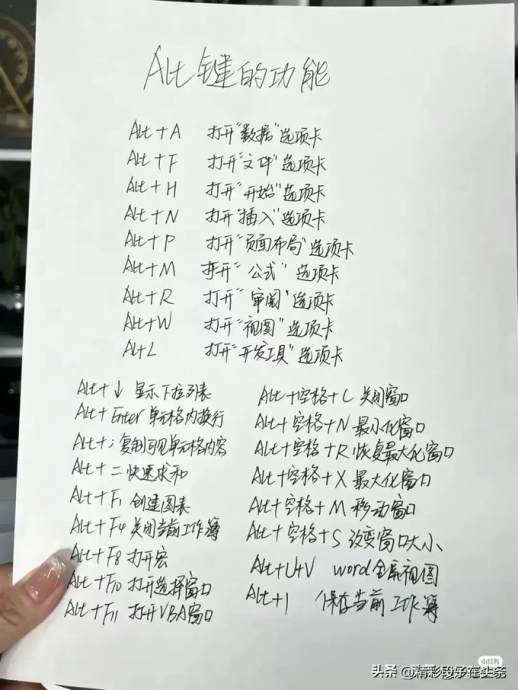 Alt键的功能
Alt+A 打开"数据"选项卡
Alt+F 打开"文件"选项卡
Alt+H 打开"开始"选项卡
Alt+N 打开"插入"选项卡
Alt+P 打开"页面布局"选项卡
Alt+M 打开"公式"选项卡
Alt+R 打开"审阅"选项卡
Alt+W 打开"视图"选项卡
Alt+L 打开"开发工具"选项卡
Alt+↓ 显示下拉列表
Alt+Enter 单元格内换行
Alt+; 复制可见单元格内容
Alt+= 快速求和
Alt+F1 创建图表
Alt+F4 关闭当前工作簿
Alt+F8 打开宏
Alt+F10 打开选择窗口
Alt+F11 打开VBA窗口
Alt+空格+C 关闭窗口
Alt+空格+N 最小化窗口
Alt+空格+R 恢复最大化窗口
Alt+空格+X 最大化窗口
Alt+空格+M 移动窗口
Alt+空格+S 改变窗口大小
Alt+U+V word全屏视图
Alt+1 保存当前工作簿
小红书
头条 @精彩段子在头条